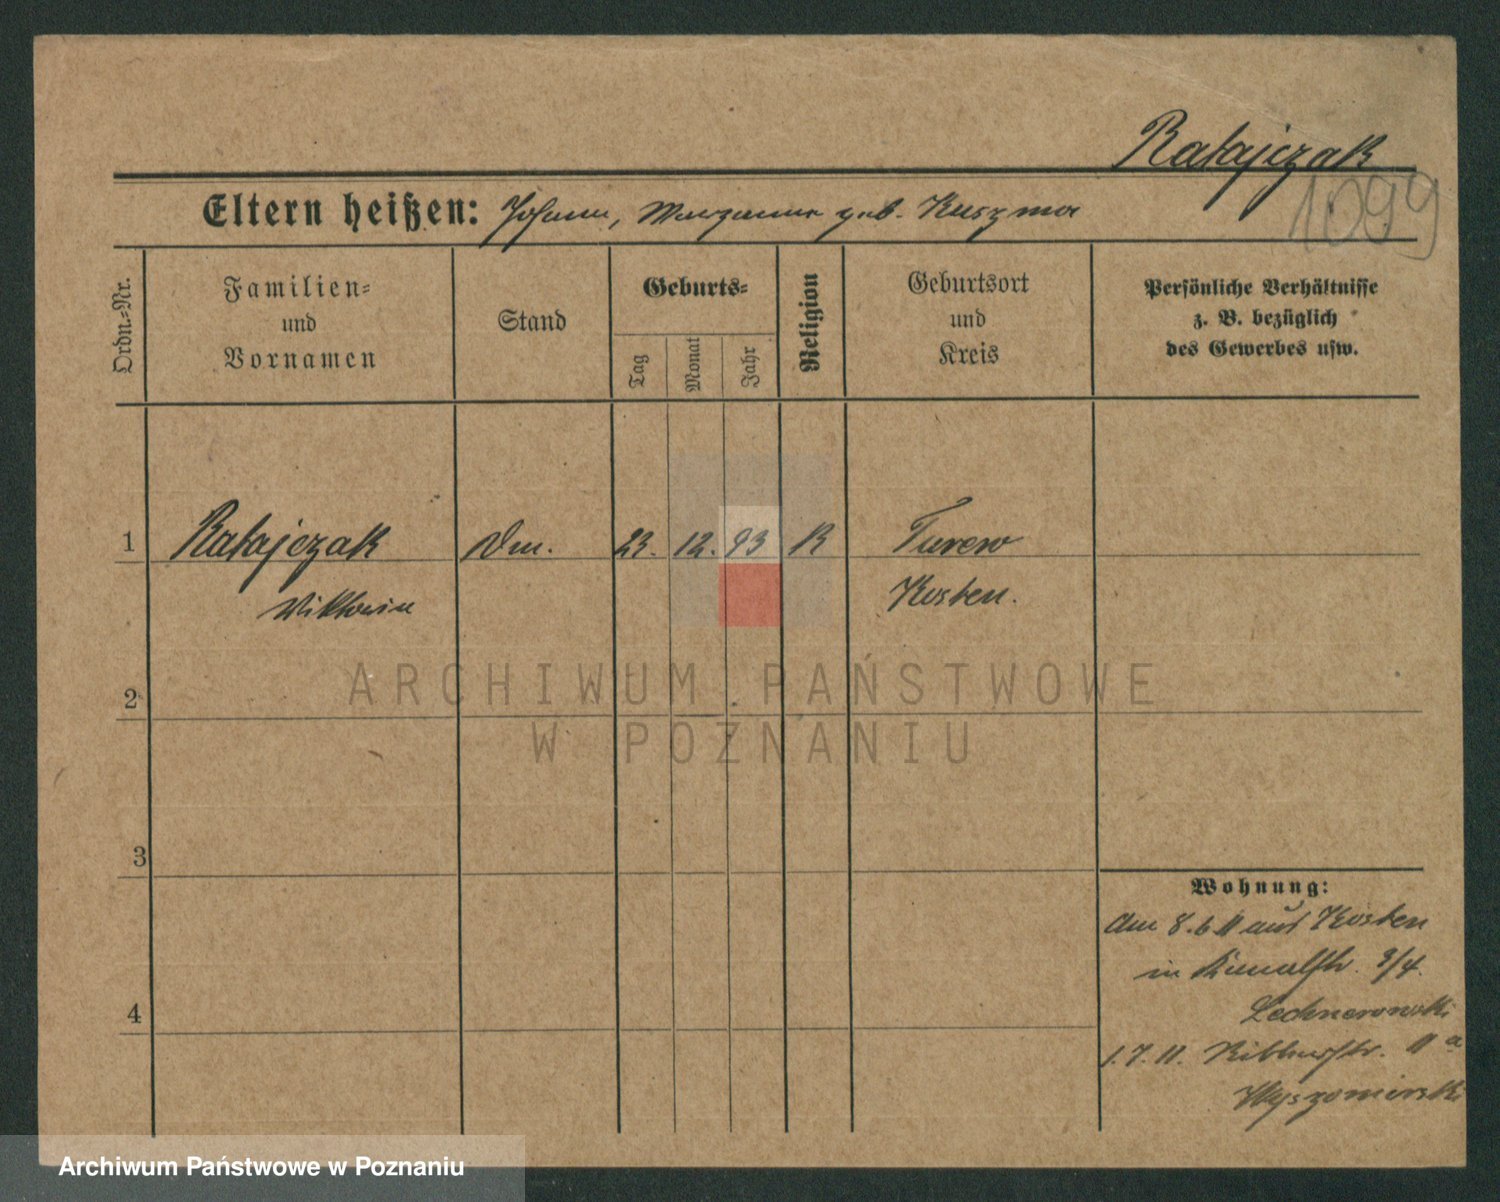 Ratajczak
1099
Eltern heißen: Johann, Maryanna geb. Kuszma
Ordn.-Nr.
Familien-
und
Vornamen
Stand
Geburts-
Tag
Monat
Jahr
Religion
Geburtsort
und
Kreis
Persönliche Verhältnisse
z. B. bezüglich
des Gewerbes usw.
1 Ratajczak Dm. 23. 12. 93 K Turew
Viktoria Kosten.
ARCHIWUM PAŃSTWOWE
W POZNANIU
2
3
4
Wohnung:
Am 8.6 11 aus Kosten
in Kanalstr. 3/4.
1.7.11. 11a
Wyszomirski
Archiwum Państwowe w Poznaniu